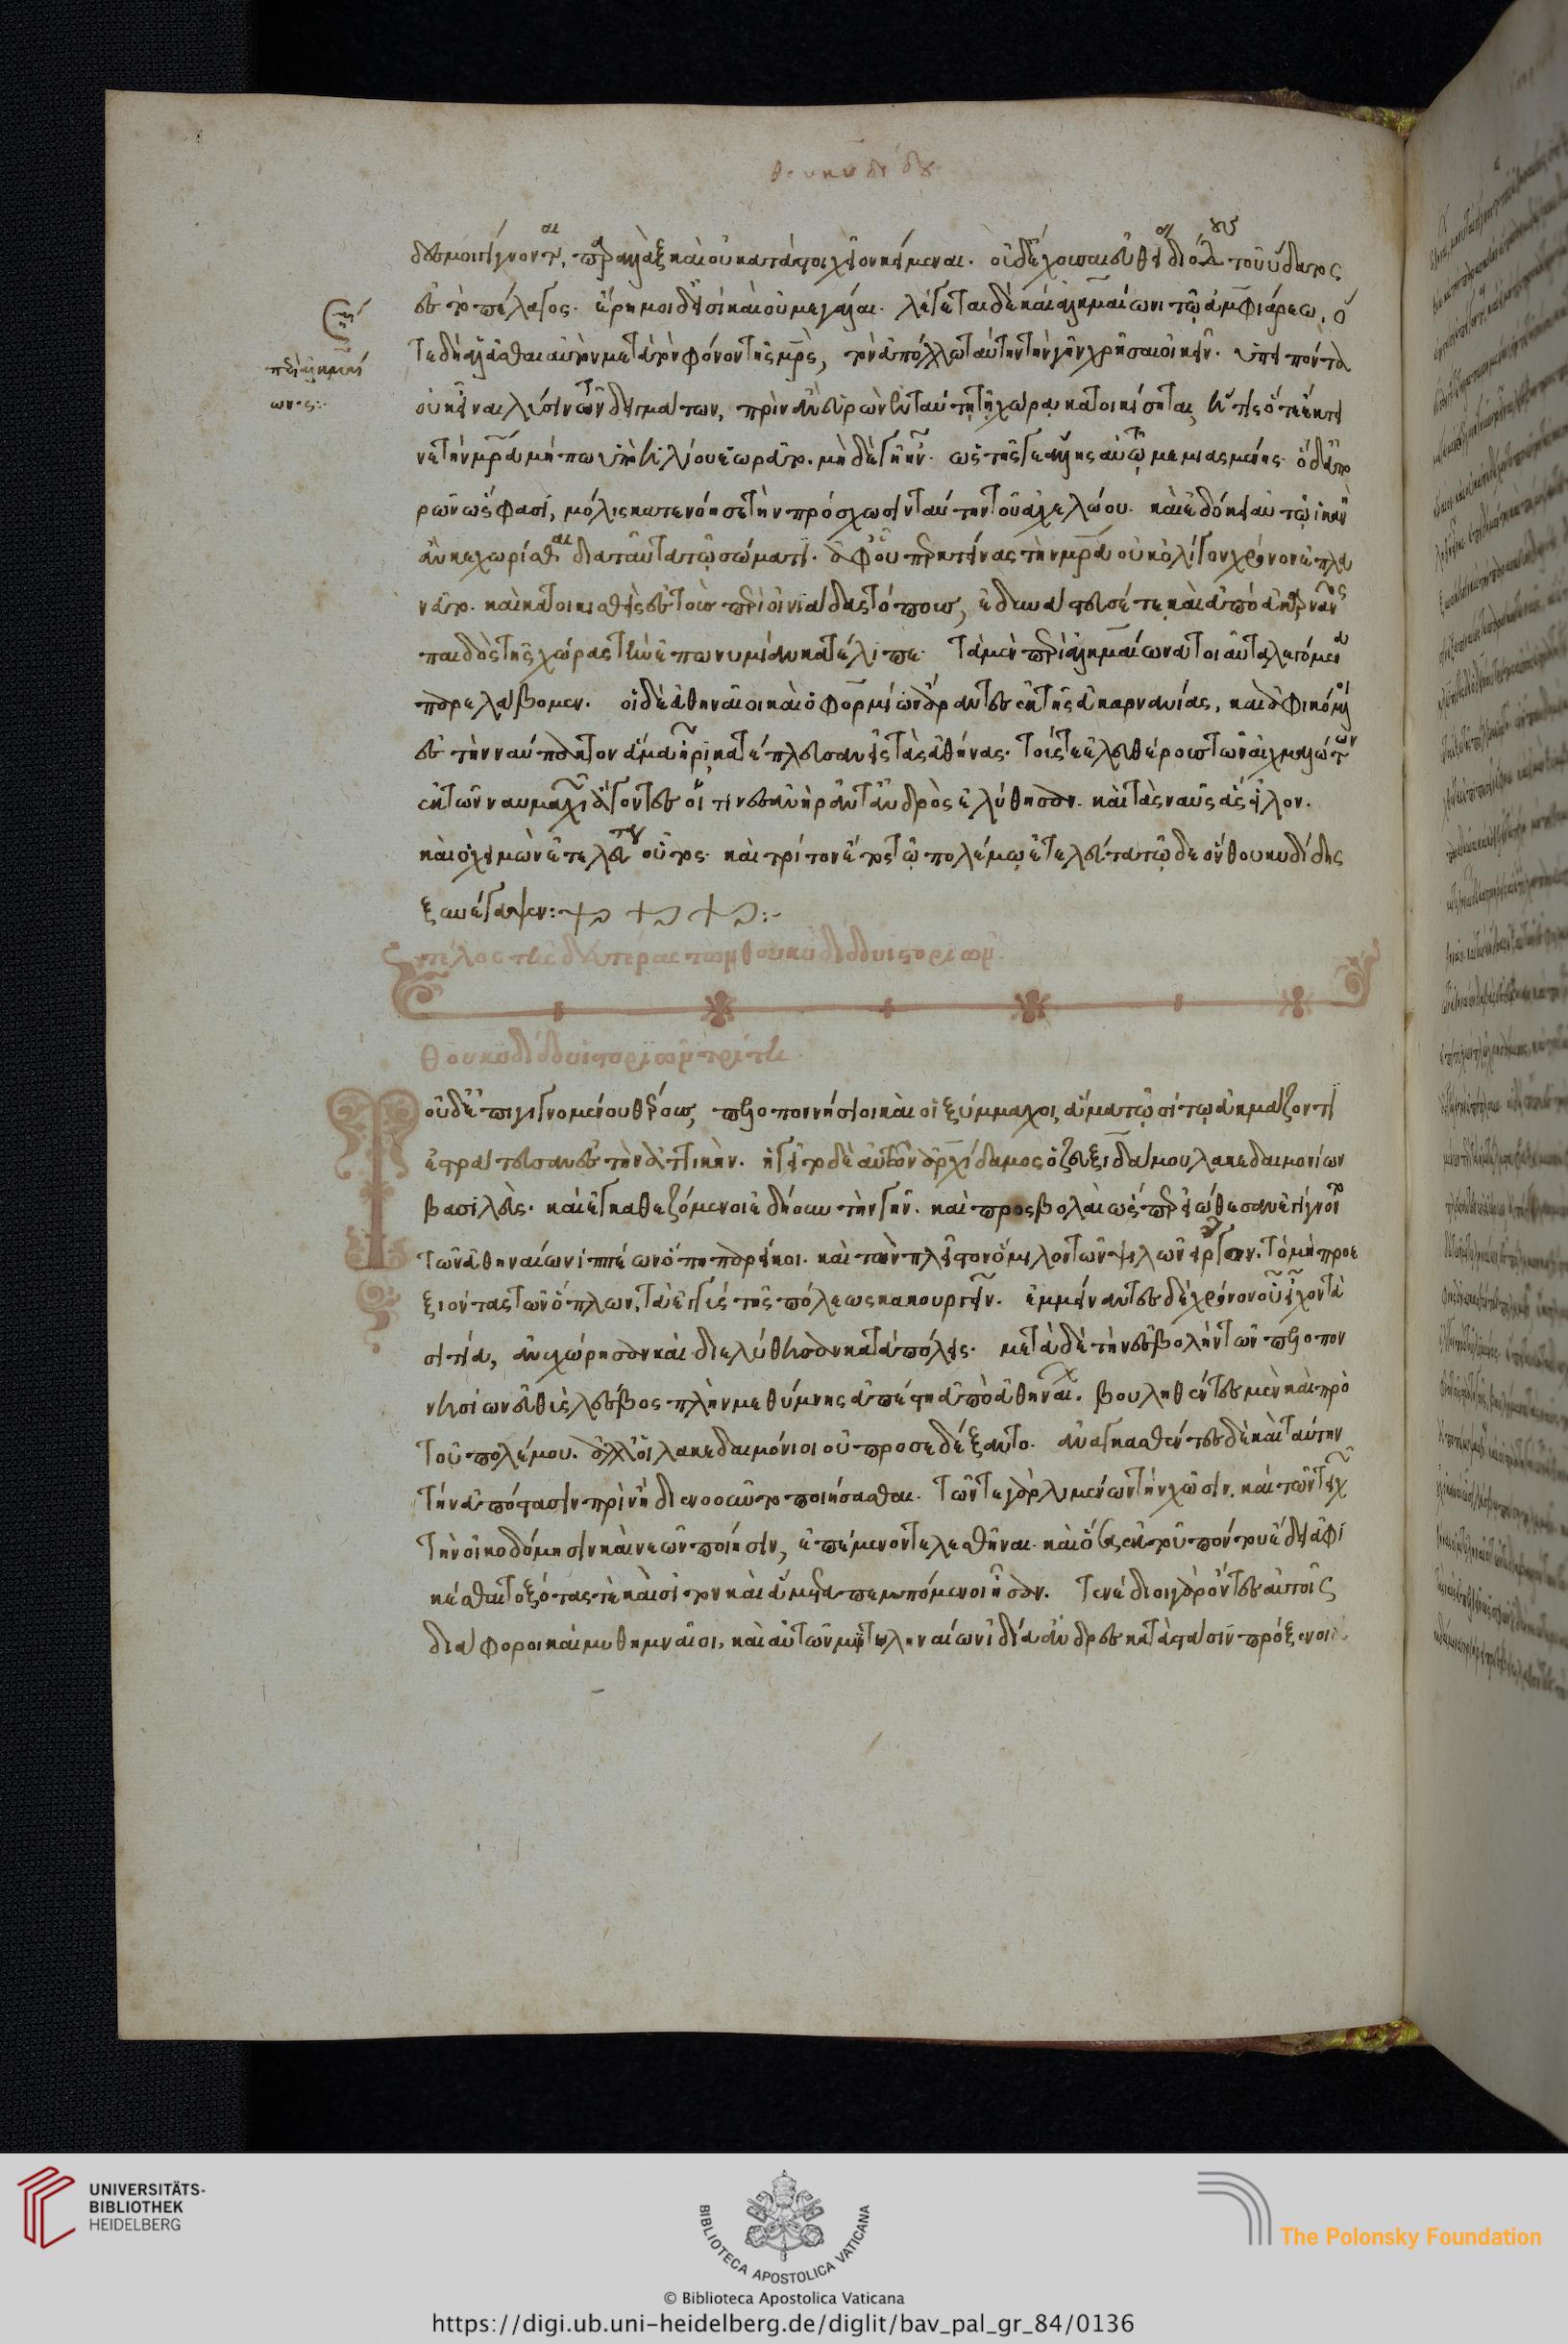 θουκυδίδου
δεσμοι γίγνονται, παραλλὰξ καὶ οὐ κατὰ στοίχον κείμεναι. οὐδ' ἔχουσαι εὐθείας διόδους τοῦ ὕδατος
ἐς τὸ πέλαγος. ἐρῆμοι δ' εἰσὶ καὶ οὐ μεγάλαι. λέγεται δὲ καὶ ἀλκμαίωνι τῷ ἀμφιάρεω, ὅ
τε δὴ ἀλᾶσθαι αὐτὸν μετὰ τὸν φόνον τῆς μητρὸς, τὸν ἀπόλλω ταύτην τὴν γῆν χρῆσαι οἰκεῖν. ὑπειπόντα
περὶ ἀλκμαί
ωνος:
οὐκ εἶναι λύσιν τῶν δειμάτων, πρὶν ἂν εὑρὼν ἐν ταύτῃ τῇ χώρᾳ κατοικίσηται, ἥτις ὅτε ἔκτει
νε τὴν μητέρα μήπω ὑπὸ ἡλίου ἑωρᾶτο. μηδὲ γῆ ἦν. ὡς τῆς γε ἄλλης αὐτῷ μεμιασμένης. ὁ δ' ἀπο
ρῶν ὥς φασι, μόλις κατενόησε τὴν πρόσχωσιν ταύτην τοῦ ἀχελώου. καὶ ἐδόκει αὐτῷ ἱκανὴ
ἂν κεχωρῖσθαι δίαιτα ἂν τῷ σώματι. ἀφ' οὗ περ κτείνας τὴν μητέρα οὐκ ὀλίγον χρόνον ἐπλα
νᾶτο. καὶ κατοικισθεὶς ἐς τοὺς περὶ οἰνιάδας τόπους, ἐδυνάστευσέ τε καὶ ἀπὸ ἀκαρνᾶνος
παιδὸς τῆς χώρας τὴν ἐπωνυμίαν κατέλιπε. τὰ μὲν περὶ ἀλκμαίωνα τοιαῦτα λεγόμενα
παρελάβομεν. οἱ δὲ ἀθηναῖοι καὶ ὁ φορμίων ἄραντες ἐκ τῆς ἀκαρνανίας, καὶ ἀφικόμενοι
ἐς τὴν ναύπακτον ἅμα ἦρι κατέπλευσαν ἐς τὰς ἀθήνας. τούς τε ἐλευθέρους τῶν αἰχμαλώτων
ἐκ τῶν ναυμαχιῶν ἄγοντες οἵτινες ἀνὴρ ἀντ' ἀνδρὸς ἐλύθησαν. καὶ τὰς ναῦς ἃς εἷλον.
καὶ ὁ χειμὼν ἐτελεύτα οὗτος. καὶ τρίτον ἔτος τῷ πολέμῳ ἐτελεύτα τῷδε ὃν θουκυδίδης
ξυνέγραψεν:
τέλος τῆς δευτέρας τῶν θουκυδίδου ἱστοριῶν
θουκυδίδου ἱστοριῶν τρίτη
Τοῦ δ' ἐπιγιγνομένου θέρους, πελοποννήσιοι καὶ οἱ ξύμμαχοι, ἅμα τῷ σίτῳ ἀκμάζοντι
ἐστράτευσαν ἐς τὴν ἀττικήν. ἡγεῖτο δὲ αὐτῶν ἀρχίδαμος ὁ ζευξιδάμου λακεδαιμονίων
βασιλεύς. καὶ ἐγκαθεζόμενοι ἐδῄουν τὴν γῆν. καὶ προσβολαὶ ὥσπερ εἰώθεσαν ἐγίγνοντο
τῶν ἀθηναίων ἱππέων ὅπῃ παρείκοι. καὶ τὸν πλεῖστον ὅμιλον τῶν ψιλῶν εἶργον. τὸ μὴ προε
ξιόντας τῶν ὅπλων, τὰ ἐγγὺς τῆς πόλεως κακουργεῖν. ἐμμείναντες δὲ χρόνον οὗ εἶχον τὰ
σιτία, ἀνεχώρησαν καὶ διελύθησαν κατὰ πόλεις. μετὰ δὲ τὴν ἐσβολὴν τῶν πελοπον
νησίων εὐθὺς λέσβος πλὴν μεθύμνης ἀπέστη ἀπὸ ἀθηναίων. βουληθέντες μὲν καὶ πρὸ
τοῦ πολέμου. ἀλλ' οἱ λακεδαιμόνιοι οὐ προσεδέξαντο. ἀναγκασθέντες δὲ καὶ ταύτην
τὴν ἀπόστασιν πρὶν ἢ διενοοῦντο ποιήσασθαι. τῶν τε γὰρ λιμένων τὴν χῶσιν. καὶ τῶν τειχῶν
τὴν οἰκοδόμησιν καὶ νεῶν ποίησιν, ἐπέμενον τελεσθῆναι. καὶ ὅσα ἐκ τοῦ πόντου ἔδει ἀφι
κέσθαι τοξότας τε καὶ σῖτον καὶ ἃ μεταπεμπόμενοι ἦσαν. τενέδιοι γὰρ ὄντες αὐτοῖς
διάφοροι καὶ μηθυμναῖοι, καὶ αὐτῶν μυτιληναίων ἰδίᾳ ἄνδρες κατὰ στάσιν πρόξενοι
UNIVERSITÄTS-
BIBLIOTHEK
HEIDELBERG
BIBLIOTECA APOSTOLICA VATICANA
The Polonsky Foundation
© Biblioteca Apostolica Vaticana
https://digi.ub.uni-heidelberg.de/diglit/bav_pal_gr_84/0136